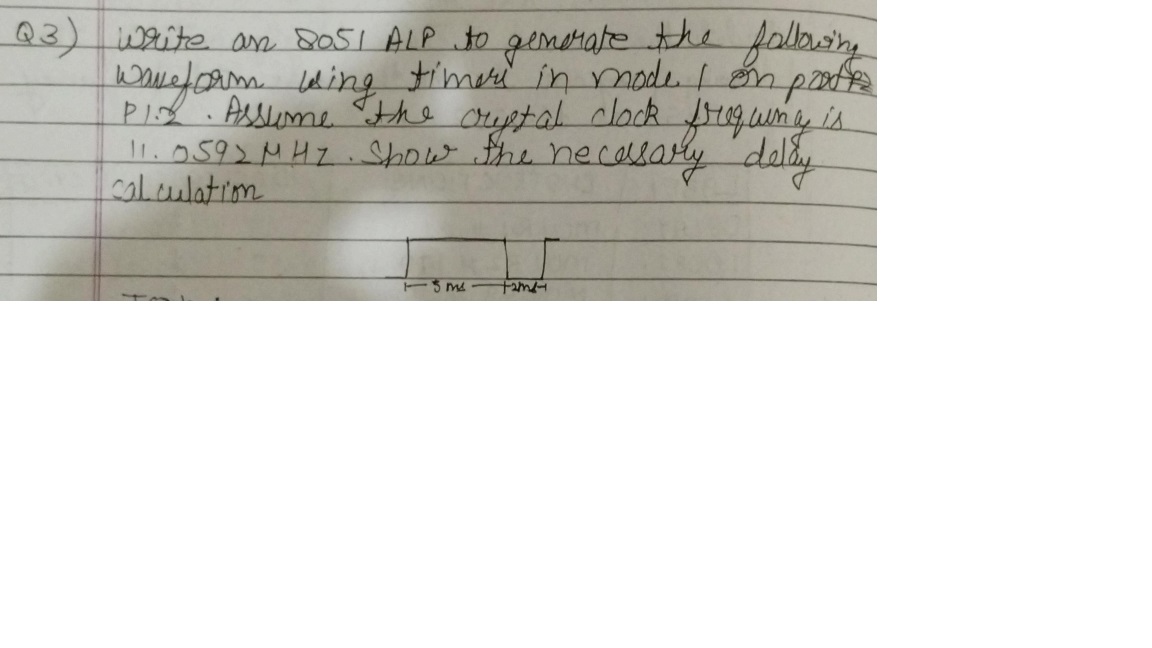 Q3) Write an 8051 ALP to generate the following
waveform using timers in mode 1 on port
P1.2 . Assume the crystal clock frequency is
11.0592 MHZ . Show the necessary delay
calculation
5 ms 2ms